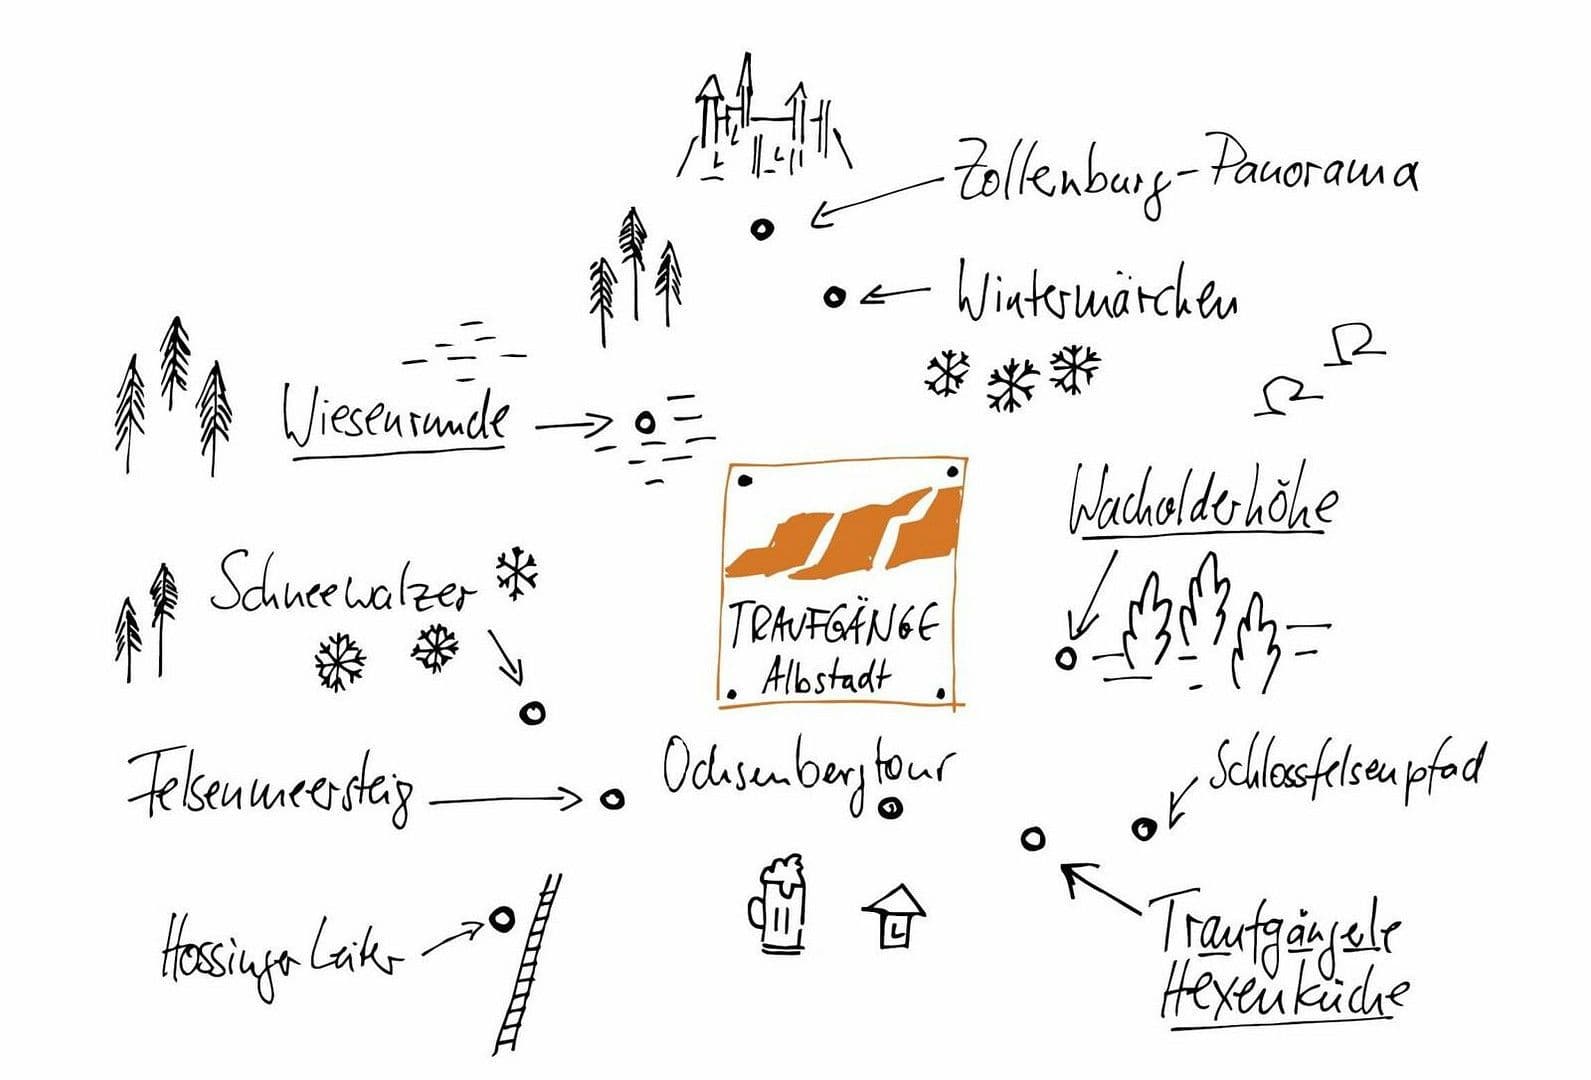 Zollenburg-Panorama
Wintermärchen
Wiesenrunde
Wacholderhöhe
Schneewalzer
TRAUFGÄNGE
Albstadt
Ochsenbergtour
Schlossfelsenpfad
Felsenmeersteig
Hossinger Leiter
Traufgängele
Hexenküche